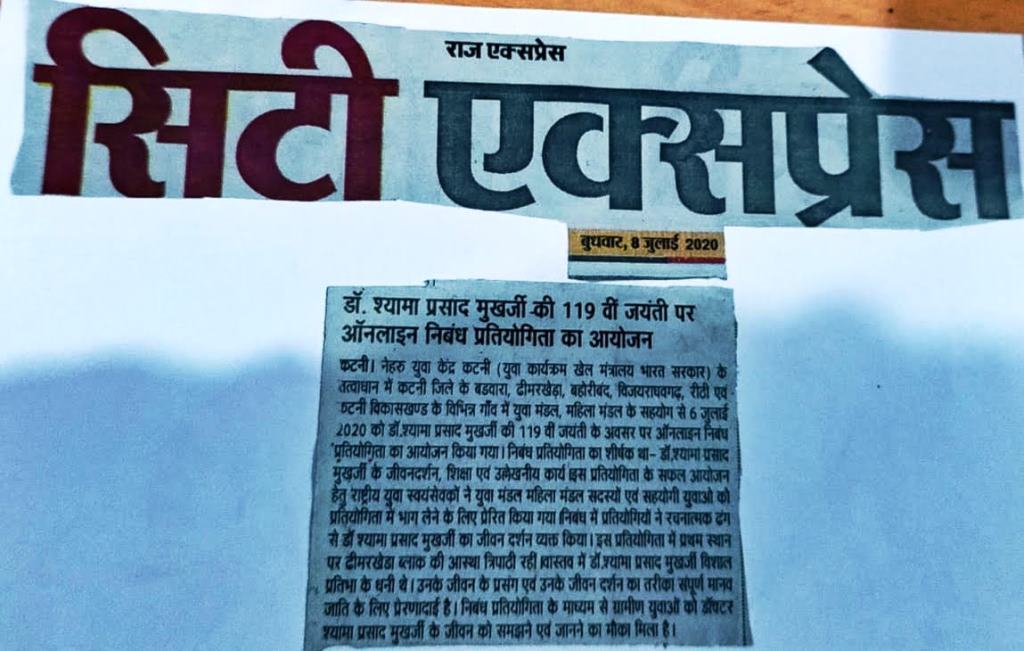 राज एक्सप्रेस
सिटी एक्सप्रेस
बुधवार, 8 जुलाई 2020
डॉ. श्यामा प्रसाद मुखर्जी की 119 वीं जयंती पर
ऑनलाइन निबंध प्रतियोगिता का आयोजन
कटनी। नेहरु युवा केंद्र कटनी (युवा कार्यक्रम खेल मंत्रालय भारत सरकार) के
तत्वाधान में कटनी जिले के बडवारा, ढीमरखेड़ा, बहोरीबंद, विजयराघवगढ़, रीठी एवं
कटनी विकासखण्ड के विभिन्न गाँव में युवा मंडल, महिला मंडल के सहयोग से 6 जुलाई
2020 को डॉ.श्यामा प्रसाद मुखर्जी की 119 वीं जयंती के अवसर पर ऑनलाइन निबंध
प्रतियोगिता का आयोजन किया गया। निबंध प्रतियोगिता का शीर्षक था- डॉ.श्यामा प्रसाद
मुखर्जी के जीवनदर्शन, शिक्षा एवं उल्लेखनीय कार्य।इस प्रतियोगिता के सफल आयोजन
हेतु राष्ट्रीय युवा स्वयंसेवकों ने युवा मंडल महिला मंडल सदस्यों एवं सहयोगी युवाओ को
प्रतियोगिता में भाग लेने के लिए प्रेरित किया गया।निबंध में प्रतियोगियों ने रचनात्मक ढंग
से डॉ श्यामा प्रसाद मुखर्जी का जीवन दर्शन व्यक्त किया। इस प्रतियोगिता में प्रथम स्थान
पर ढीमरखेडा ब्लाक की आस्था त्रिपाठी रहीं।वास्तव में डॉ.श्यामा प्रसाद मुखर्जी विशाल
प्रतिभा के धनी थे। उनके जीवन के प्रसंग एवं उनके जीवन दर्शन का तरीका संपूर्ण मानव
जाति के लिए प्रेरणादाई है। निबंध प्रतियोगिता के माध्यम से ग्रामीण युवाओं को डॉक्टर
श्यामा प्रसाद मुखर्जी के जीवन को समझने एवं जानने का मौका मिला है।